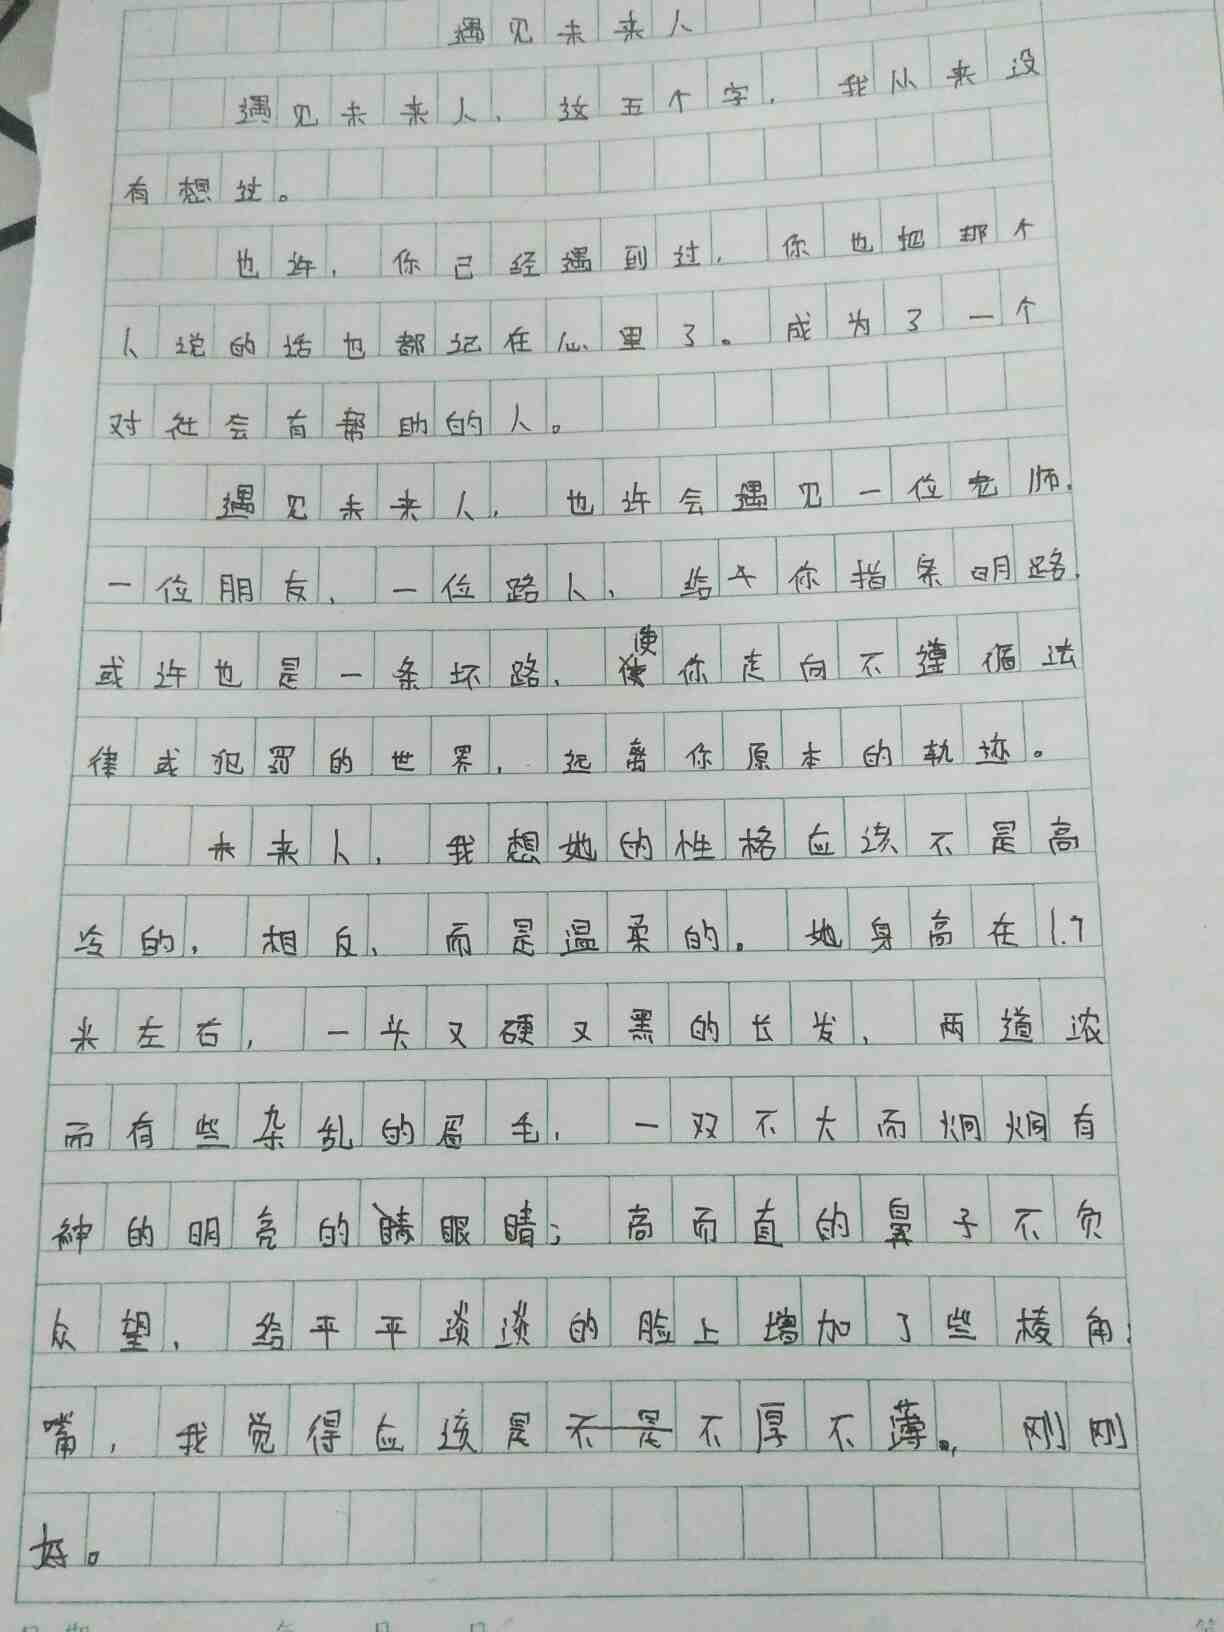 遇见未来人
遇见未来人，这五个字，我从来没
有想过。
也许，你已经遇到过，你也把那个
人说的话也都记在心里了。成为了一个
对社会有帮助的人。
遇见未来人，也许会遇见一位老师，
一位朋友，一位路人，给予你指条明路，
或许也是一条坏路，使你走向不遵循法
律或犯罚的世界，远离你原本的轨迹。
未来人，我想她的性格应该不是高
冷的，相反，而是温柔的。她身高在1.7
米左右，一头又硬又黑的长发，两道浓
而有些杂乱的眉毛，一双不大而炯炯有
神的明亮的眼睛；高而直的鼻子不负
众望，给平平淡淡的脸上增加了些棱角；
嘴，我觉得应该是不厚不薄，刚刚
好。